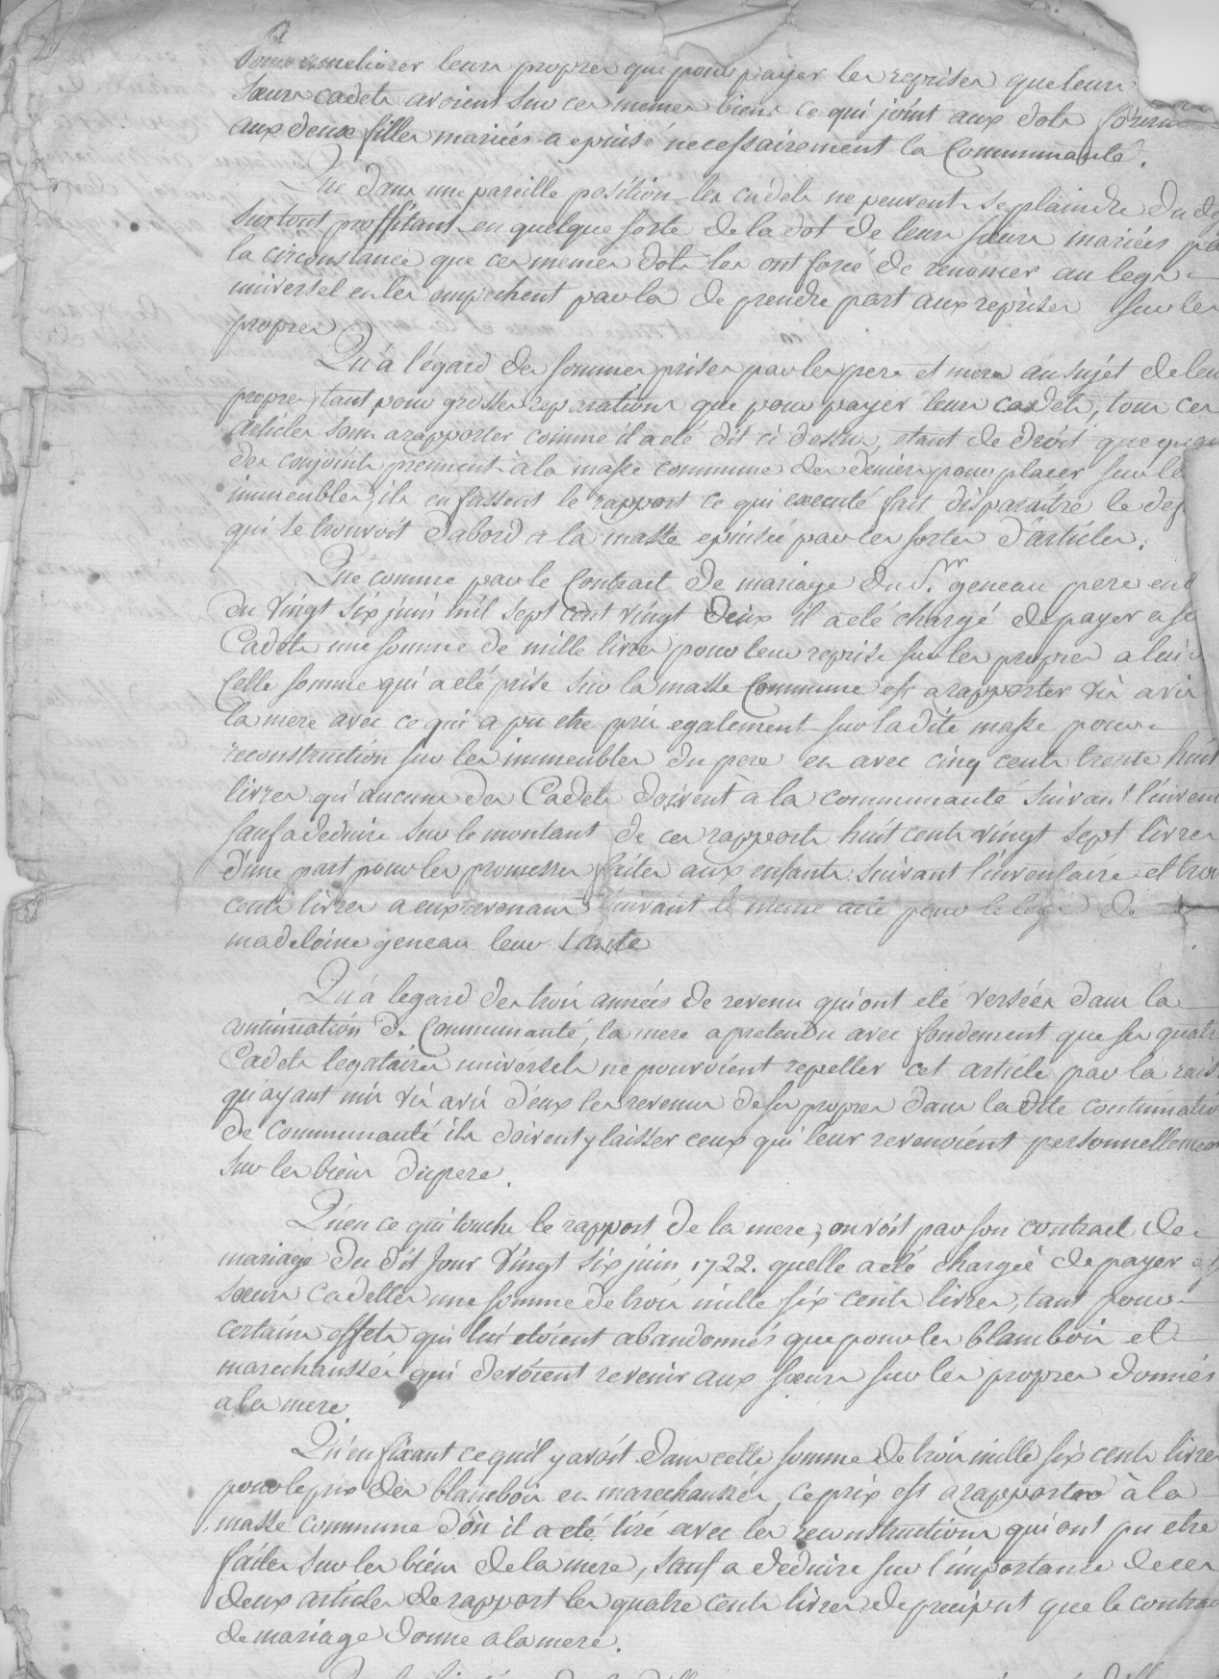 pour ameliorer leurs propres que pour payer les reprises que leurs
sœurs cadets avoient sur ces memes biens ce qui joint aux dots
aux deux filles mariées a epuisé necessairement la Communauté.
Que dans une pareille position les cadets ne peuvent se plaindre du
surtout proffitant en quelque sorte de la dot de leurs sœurs mariées
la circonstance que ces memes dots les ont forcé de renoncer au legs
universel et les empechent par la de prendre part aux reprises sur les
propres
Qu'a l'égard des sommes prises par les pere et mere au sujét de
propres tant pour grosses reparations que pour payer leurs cadets, tous ces
articles sont a rapporter comme il a eté dit ci dessus, etant de droit que
des conjoints prennent a la masse commune des deniers pour placer sur
immeubles, ils en fassent le rapport ce qui executé fait disparaitre le
qui se trouvoit d'abord a la masse epuisée par ces sortes d'articles.
Que comme par le Contract de mariage du Sr. geneau pere
du vingt six juin mil sept cent vingt deux il a eté chargé de payer a
Cadets une somme de mille livres pour leurs reprise sur les propres a lui
Cette somme qui a eté prise sur la masse Commune est a rapporter vis a vis
la mere avec ce qui a pu etre pris egalement sur la dite masse pour
reconstruction sur les immeubles du pere et avec cinq cents trente huit
livres qu'aucuns des Cadets doivent a la communauté suivant
sauf a deduire sur le montant de ces rapports huit cents vingt sept livres
d'une part pour les promesses faites aux enfants suivant l'inventaire et
cents livres a eux revenans suivant le meme acte pour le legs de
madeleine geneau leur tante
Qu'a legard des trois années de revenu qui ont eté versées dans la
continuation de Communauté, la mere a pretendu avec fondement que ses
Cadets legataires universels ne pouvoient repeller cet article par la
qu'ayant mis vis a vis d'eux les revenus de ses propres dans la dite
de Communauté ils doivent y laisser ceux qui leur revenoient
sur les biens du pere.
Qu'en ce qui touche le rapport de la mere, on voit par son contract de
mariage du dit Jour vingt six juin 1722. quelle a eté chargée de payer
sœurs Cadettes une somme de trois mille six cents livres, tant pour
certains effets qui lui etoient abandonnés que pour les blambois et
marechaussés qui devoient revenir aux sœurs sur les propres donnés
a la mere.
Qu'en fixant ce qu'il y avoit dans cette somme de trois mille six cents livres
pour le prix des blambois et marechaussés, ce prix est a rapporter à la
masse commune d'où il a eté tiré avec les reconstructions qui ont pu etre
faites sur les biens de la mere, sauf a deduire sur l'importance de ces
deux articles de rapport les quatre cents livres de preciput que le
de mariage donne a la mere.